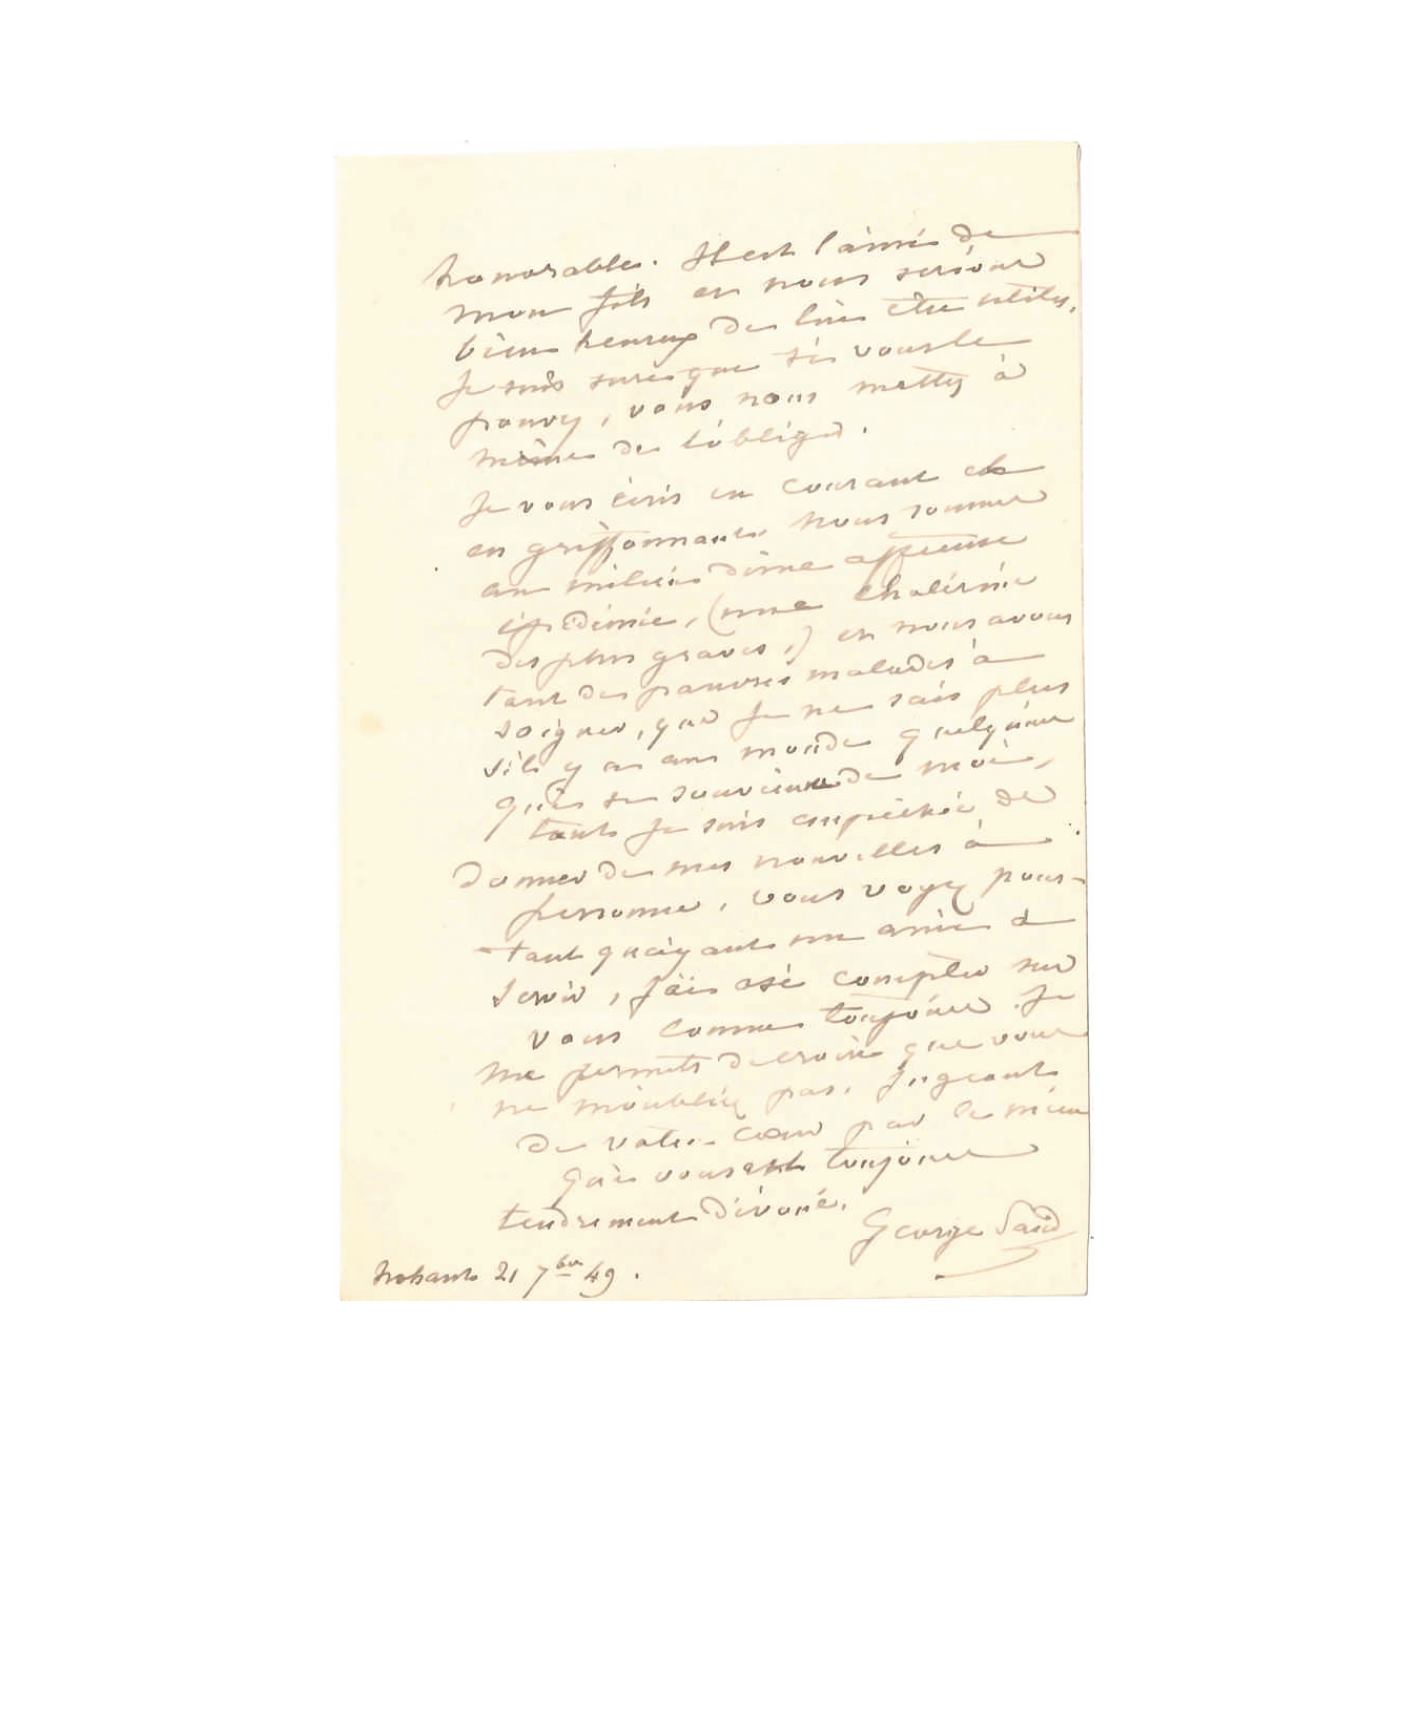 honorable. Il est l'ami de
mon fils et nous serions
bien heureux de lui être utiles.
Je suis sure que si vous le
pouvez, vous nous mettez à
même de l'obliger.
Je vous écris en courant et
en griffonnant. Nous sommes
au milieu d'une affreuse
épidémie, (une cholérine
des plus graves,) et nous avons
tant de pauvres malades à
soigner, que je ne sais plus
s'il y a au monde quelqu'un
qui se souvienne de moi,
tant je suis empêchée de
donner de mes nouvelles à
personne. Vous voyez pour-
tant qu'ayant un ami à
servir, j'ai osé compter sur
vous comme toujours. Je
me permets de croire que vous
ne m'oubliez pas, jugeant
de votre cœur par le mien
qui vous est toujours
tendrement dévoué.
George Sand
Nohant 21 7bre 49.